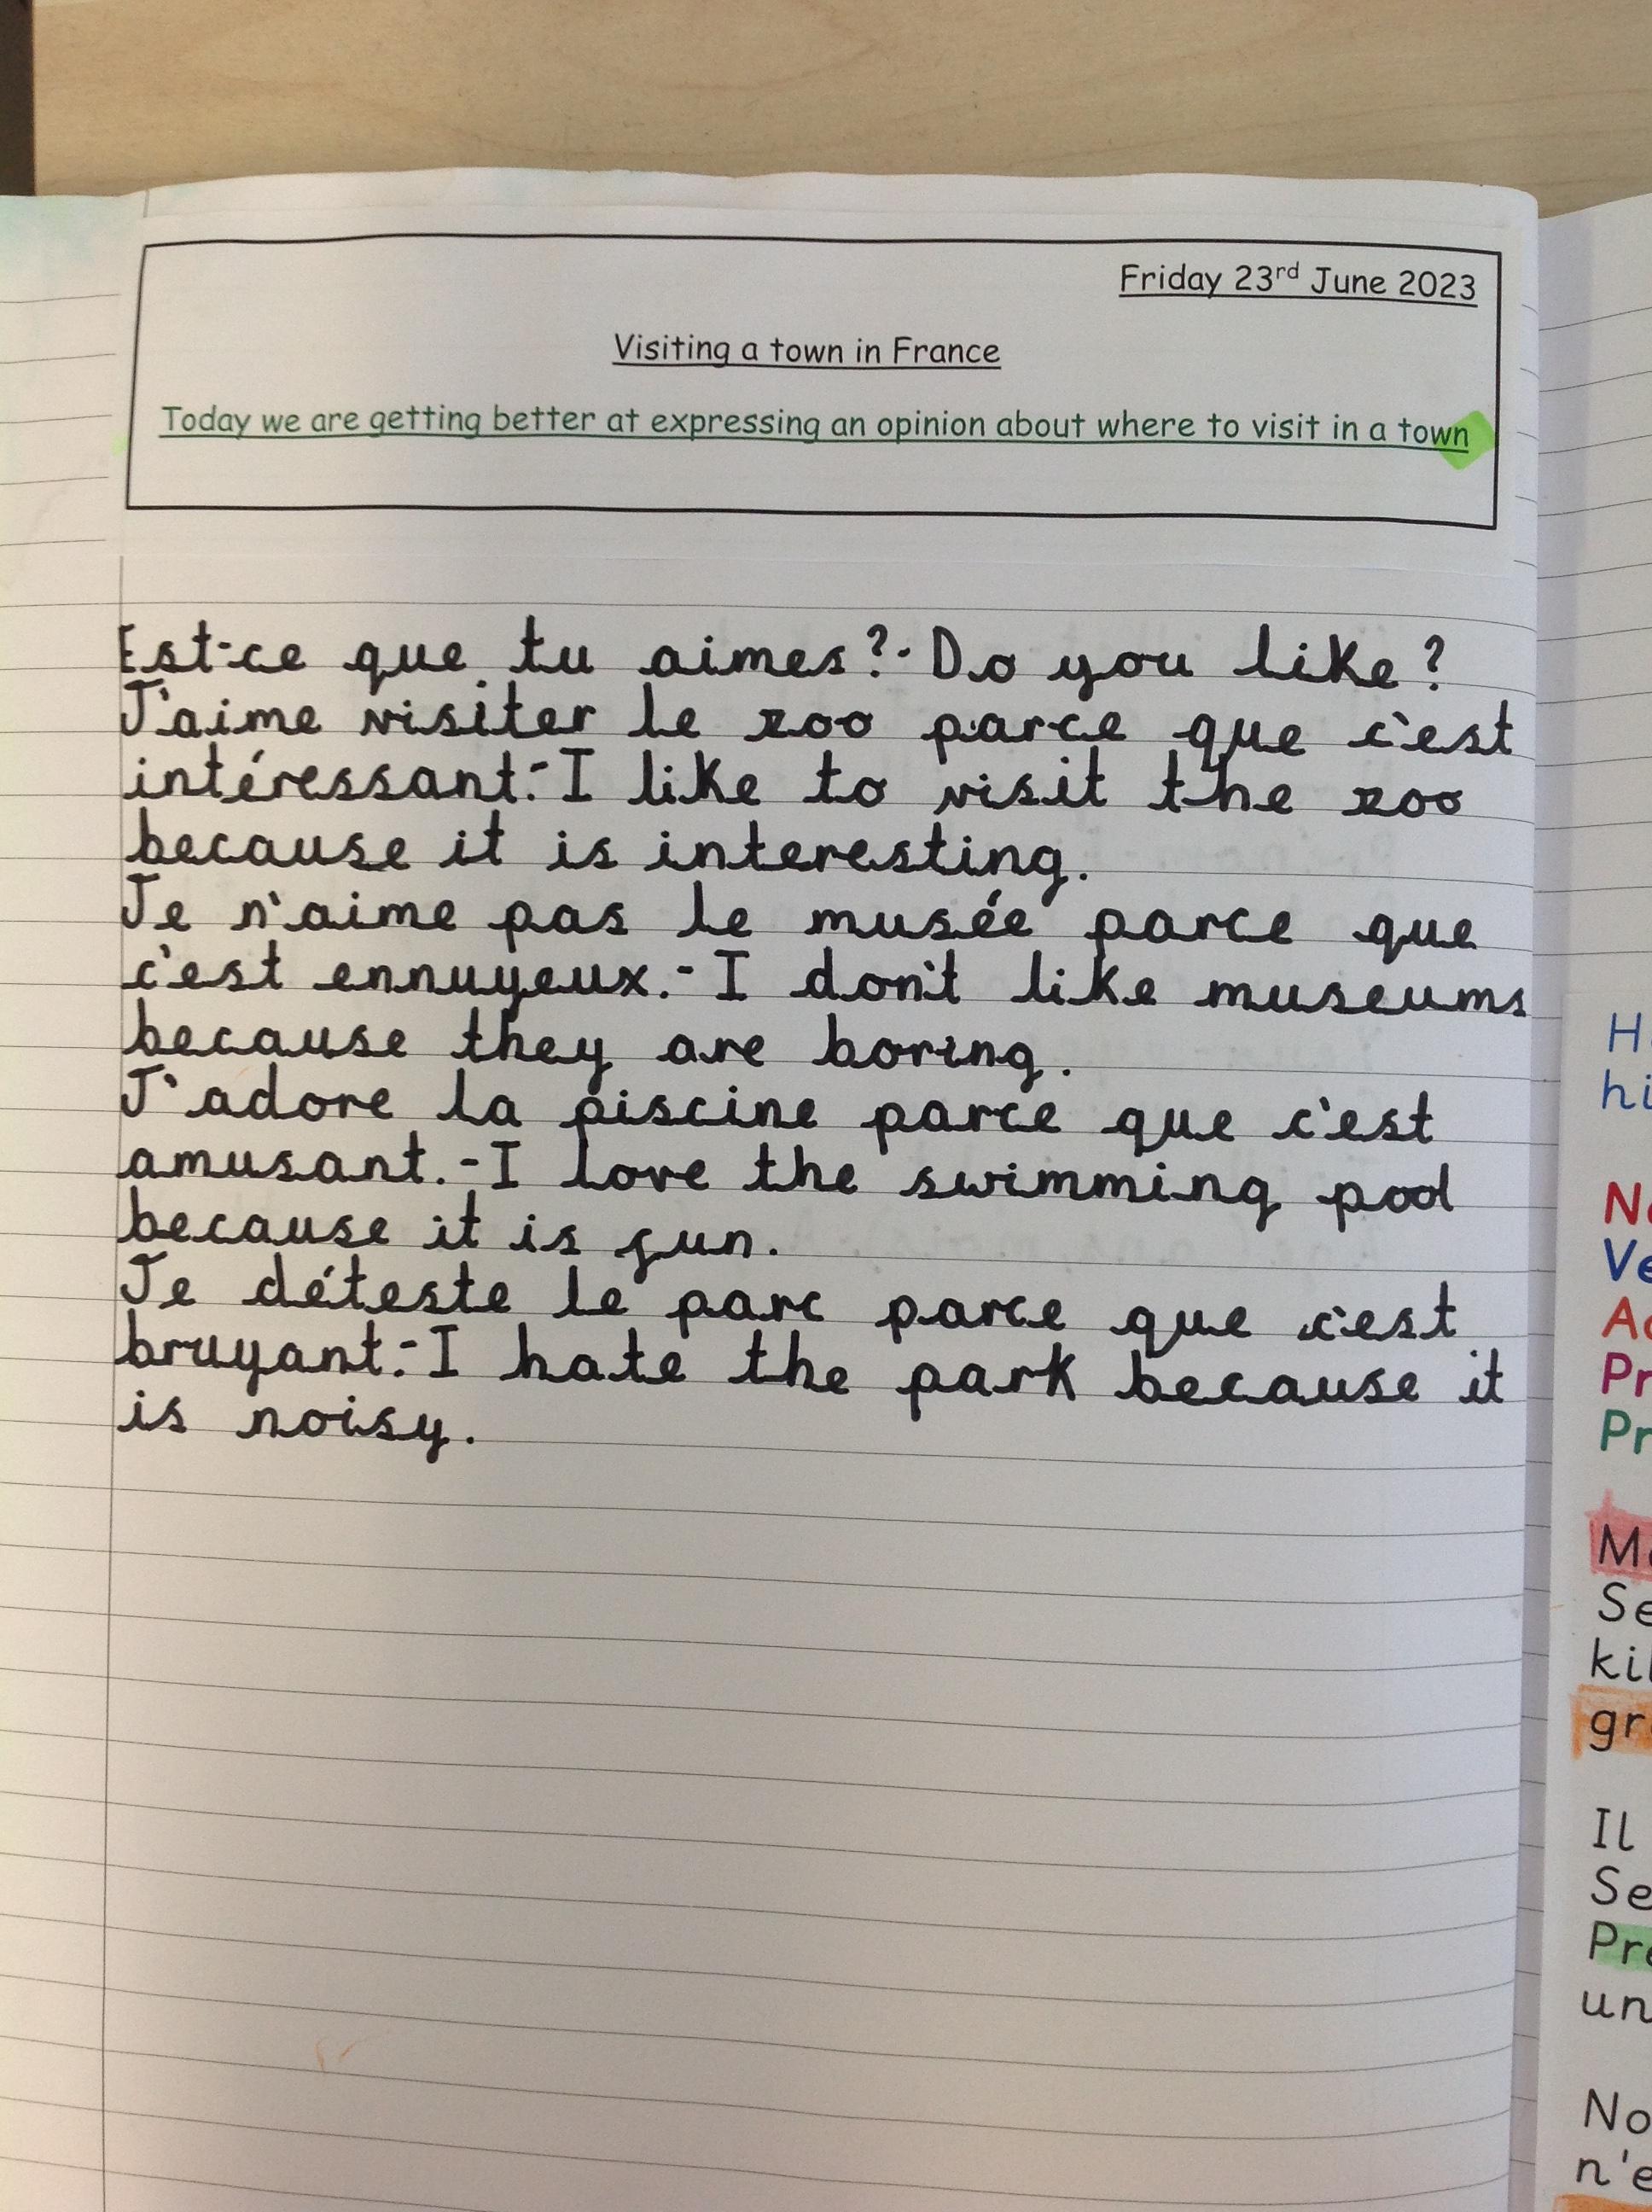 Friday 23rd June 2023
Visiting a town in France
Today we are getting better at expressing an opinion about where to visit in a town
Est-ce que tu aimes?- Do you like?
J'aime visiter le zoo parce que c'est
intéressant.-I like to visit the zoo
because it is interesting.
Je n'aime pas le musée parce que
c'est ennuyeux.-I don't like museums
because they are boring.
J'adore la piscine parce que c'est
amusant.-I love the swimming pool
because it is fun.
Je déteste le parc parce que c'est
bruyant.-I hate the park because it
is noisy.
Il